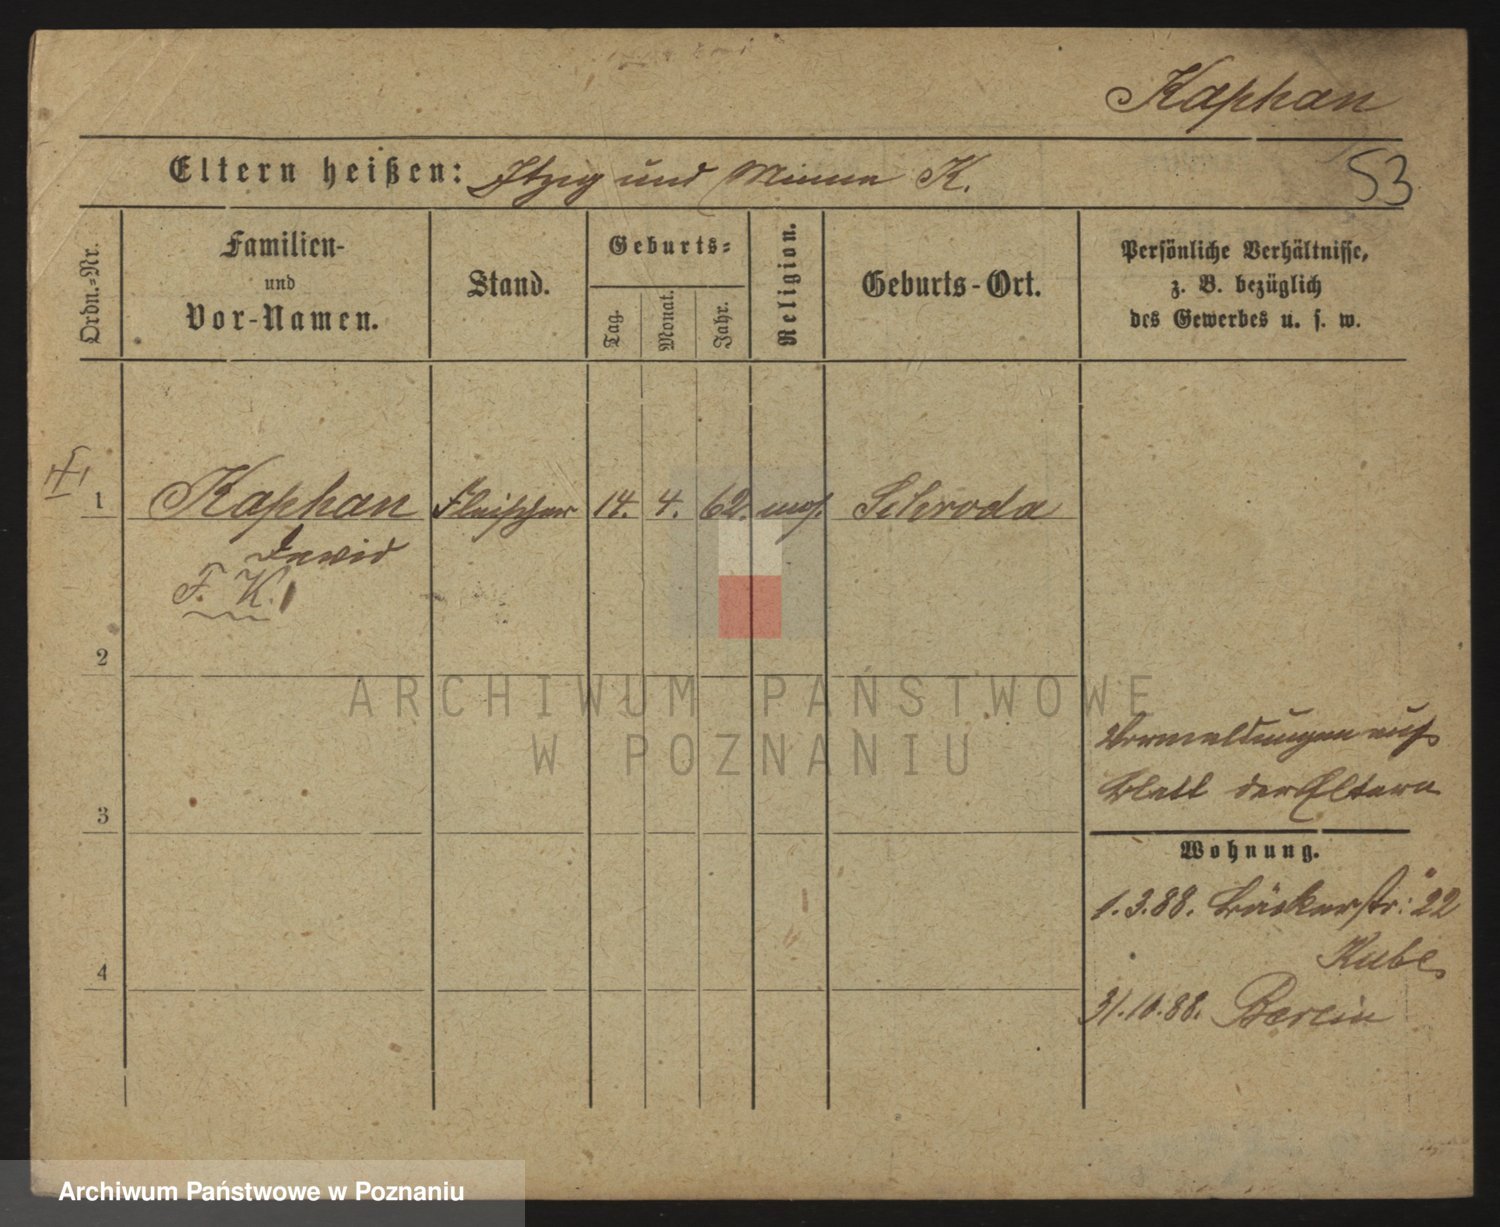 Kaphan
Eltern heißen: Itzig und Minna K.
53
Ordn.-Nr.
Familien-
und
Vor-Namen.
Stand.
Geburts-
Tag.
Monat.
Jahr.
Religion.
Geburts-Ort.
Persönliche Verhältnisse,
z. B. bezüglich
des Gewerbes u. s. w.
1 Kaphan Fleischer 14. 4. 62. mos. Schroda
David
F. K.
2
ARCHIWUM PAŃSTWOWE
W POZNANIU
Vermeldungen auf
Blatt der Eltern
3
Wohnung.
1.3.88. Bäckerstr: 22
Kube
4
31.10.88. Berlin
Archiwum Państwowe w Poznaniu